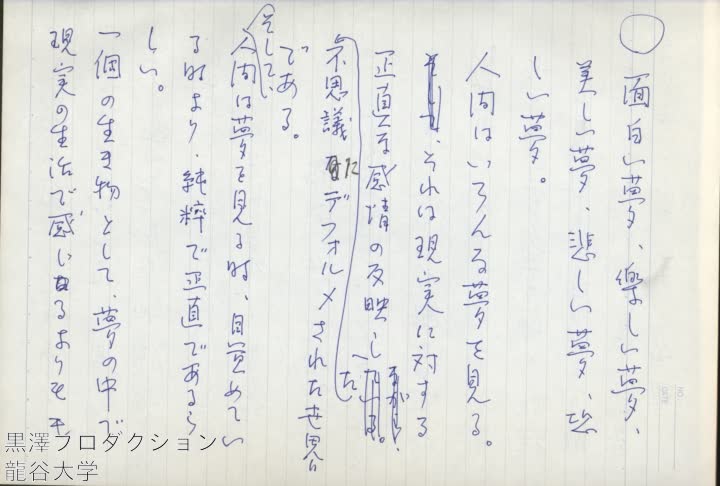 ○
面白い夢、楽しい夢、
美しい夢、悲しい夢、恐
しい夢。
人間はいろんな夢を見る。
それは現実に対する
正直な感情の反映した
不思議にデフォルメされた世界
である。
そして、人間は夢を見る時、目覚めてい
る時より、純粋で正直であるら
しい。
一個の生き物として、夢の中で
現実の生活で感じるよりもも
黒澤プロダクション
龍谷大学